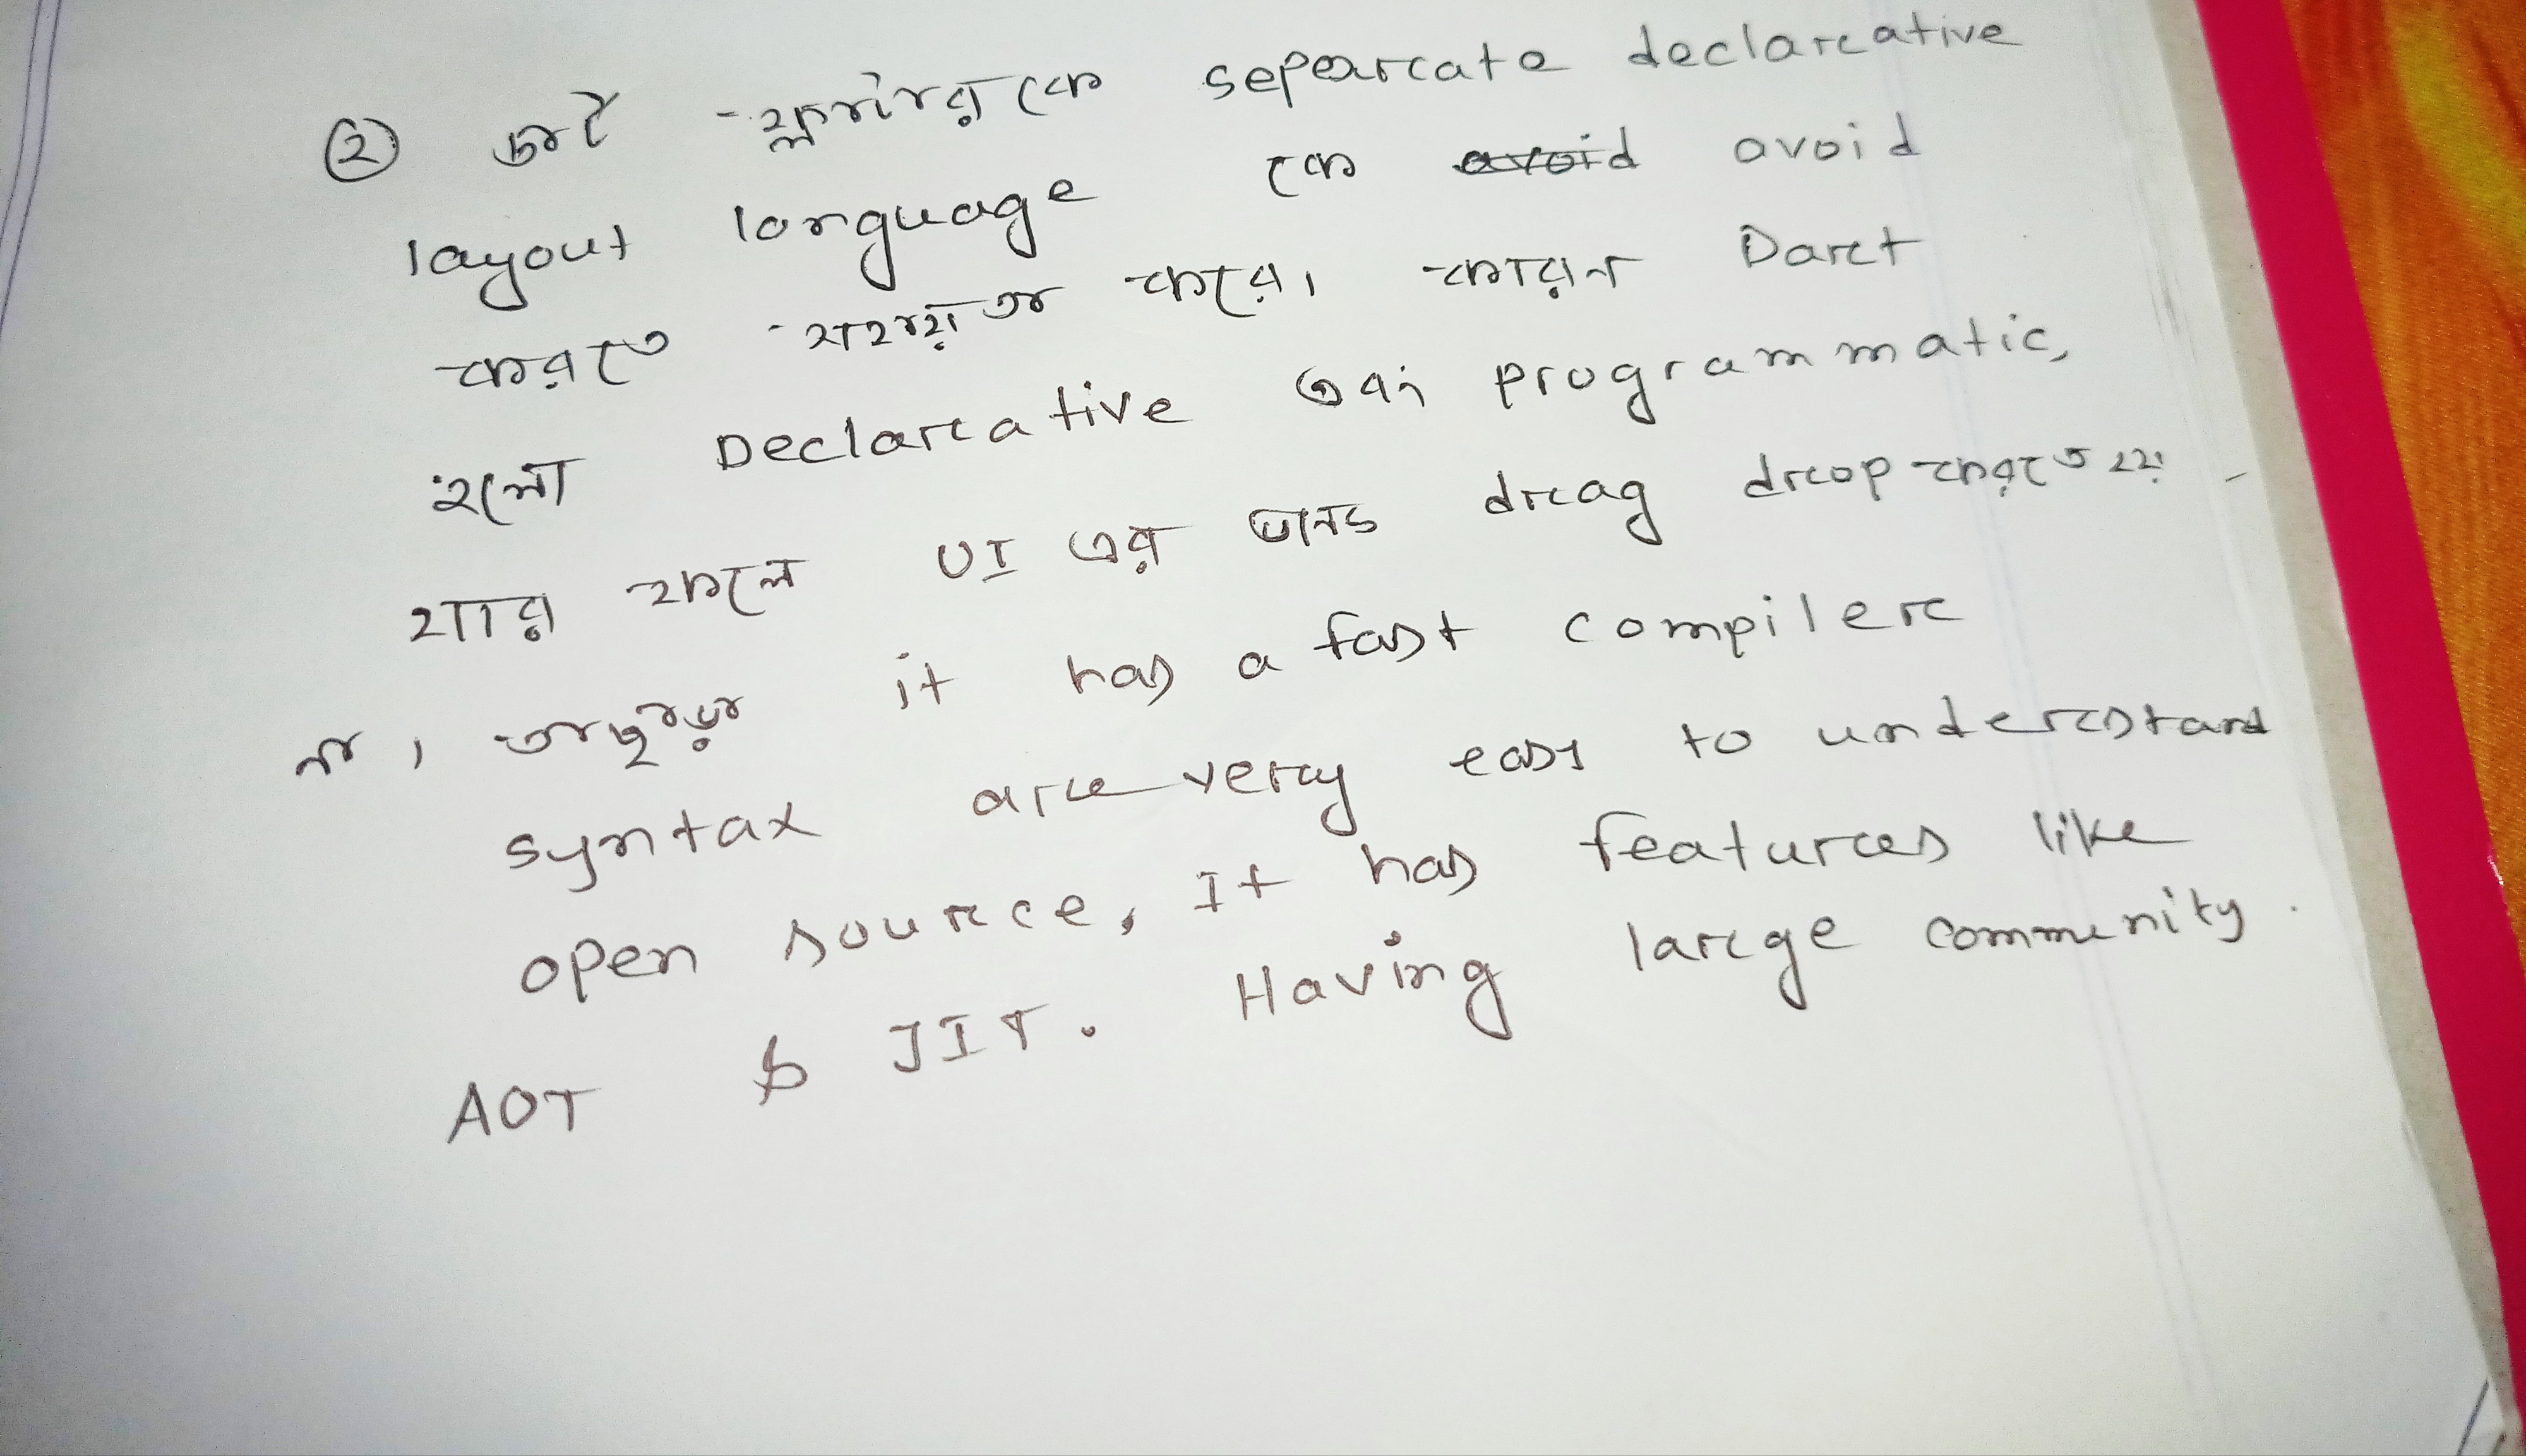 ② ডার্ট ফ্লাটারকে separate declarative
layout language কে avoid avoid
করতে সাহায্য করে। কারন Dart
হলো Declarative এবং programmatic,
যার ফলে UI এর জন্য drag drop করতে হয়
না, তাছাড়া it has a fast compiler
syntax are very easy to understand
open source, It has features like
AOT & JIT. Having large community.